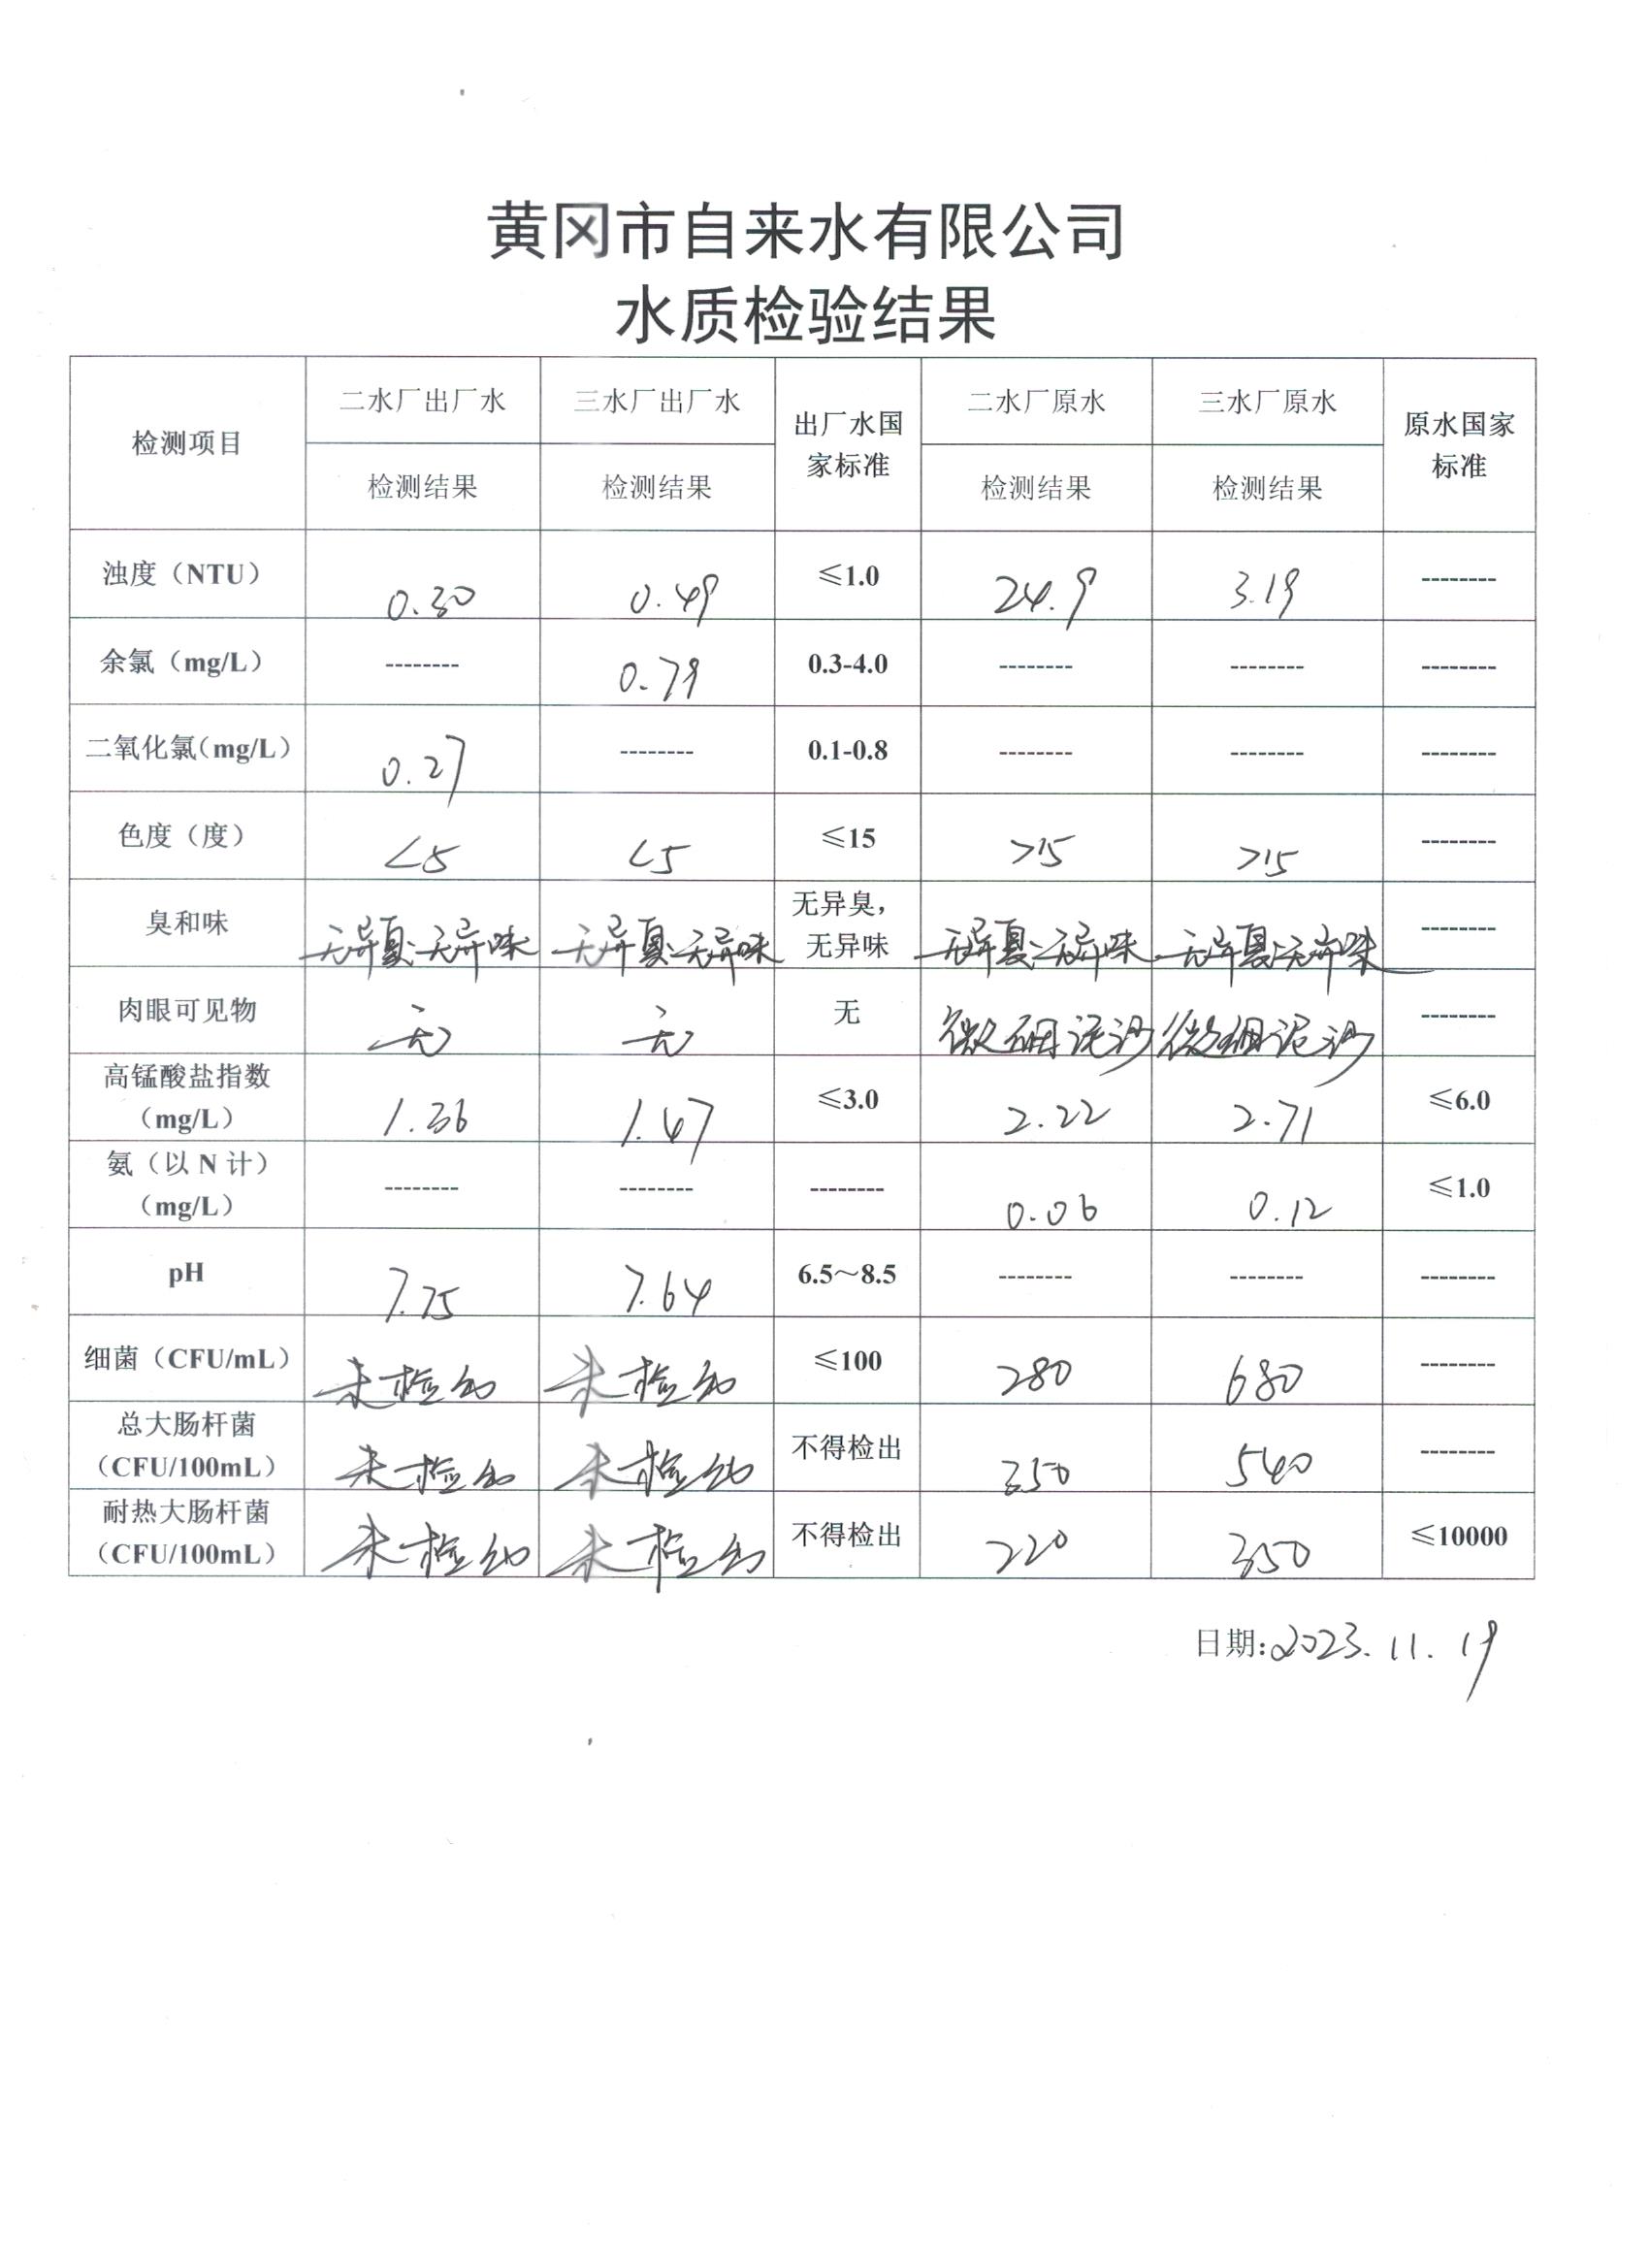 黄冈市自来水有限公司
水质检验结果
检测项目 二水厂出厂水 三水厂出厂水 出厂水国家标准 二水厂原水 三水厂原水 原水国家标准
检测结果 检测结果 检测结果 检测结果
浊度（NTU） 0.30 0.49 ≤1.0 24.9 3.19 --------
余氯（mg/L） -------- 0.79 0.3-4.0 -------- -------- --------
二氧化氯（mg/L） 0.27 -------- 0.1-0.8 -------- -------- --------
色度（度） <5 <5 ≤15 >15 >15 --------
臭和味 无异臭、无异味 无异臭、无异味 无异臭，无异味 无异臭、无异味 无异臭、无异味 --------
肉眼可见物 无 无 无 微细泥沙 微细泥沙 --------
高锰酸盐指数（mg/L） 1.36 1.47 ≤3.0 2.22 2.71 ≤6.0
氨（以 N 计）（mg/L） -------- -------- -------- 0.06 0.12 ≤1.0
pH 7.75 7.64 6.5～8.5 -------- -------- --------
细菌（CFU/mL） 未检出 未检出 ≤100 280 680 --------
总大肠杆菌（CFU/100mL） 未检出 未检出 不得检出 350 540 --------
耐热大肠杆菌（CFU/100mL） 未检出 未检出 不得检出 220 350 ≤10000
日期:2023.11.19